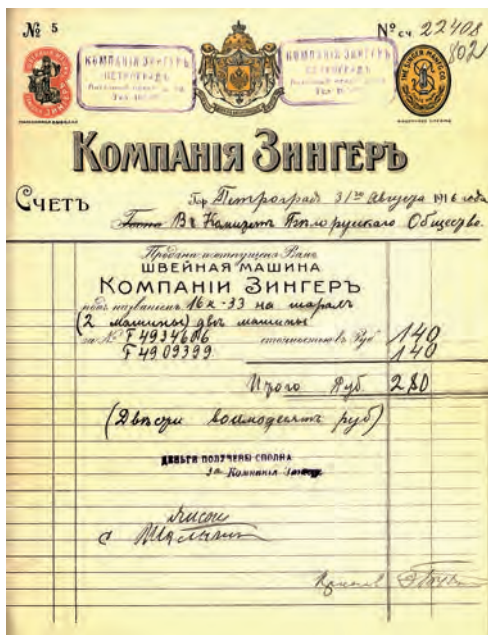 № 5
№ сч. 22408
802
КОМПАНІЯ ЗИНГЕРЪ
ПЕТРОГРАДЪ
КОМПАНІЯ ЗИНГЕРЪ
ПЕТРОГРАДЪ
THE SINGER MANFG. CO.
Компанія Зингеръ
Счетъ
Гор. Петроградъ 31го Августа 1916 года
Въ Комитетъ Общество.
Продана и отпущена Вамъ
ШВЕЙНАЯ МАШИНА
КОМПАНІИ ЗИНГЕРЪ
подъ названіемъ 16к-33 на
(2 машины) двѣ машины
за № F 4934686 стоимостью въ Руб 140
F 4909399 140
Итого Руб 280
(Двѣсти восемдесятъ руб)
ДЕНЬГИ ПОЛУЧЕНЫ СПОЛНА
За Компанія Зингеръ